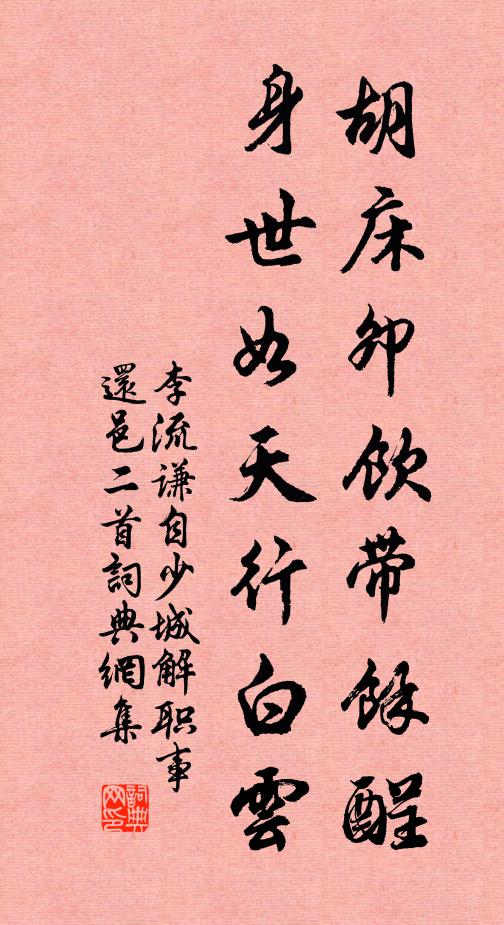 胡床卯飲帶餘醒
身世如天行白雲
李流谦自少城解职事
還邑二首詞典網集
詞典网印